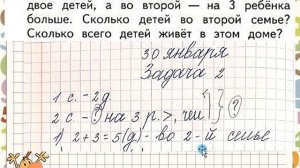 двое детей, а во второй — на 3 ребёнка
больше. Сколько детей во второй семье?
Сколько всего детей живёт в этом доме?
30 января
Задача 2
1 с. - 2 д.
2 с. - ? на 3 р. >, чем ?
1) 2 + 3 = 5 (д) - во 2-й семье